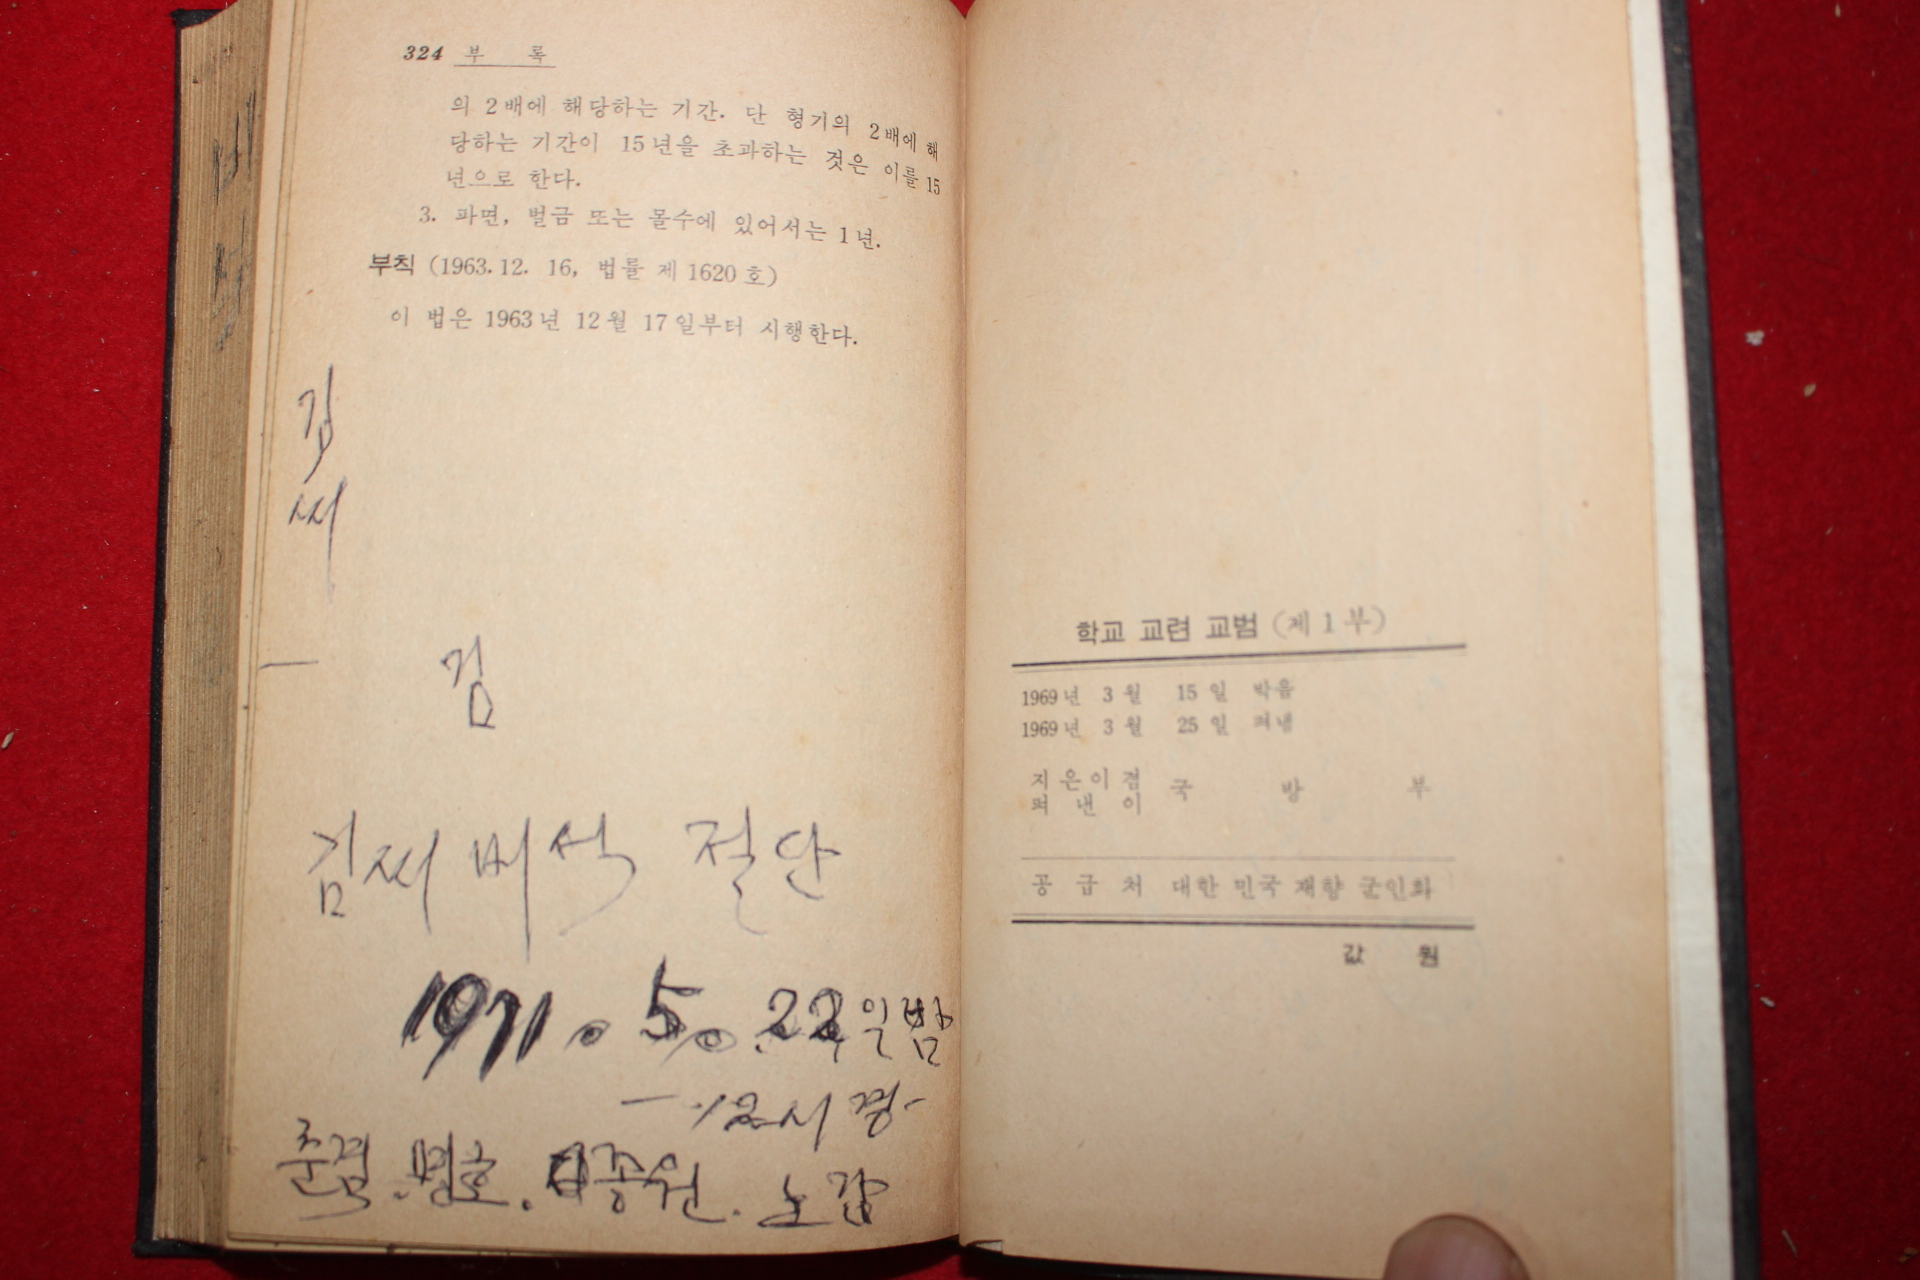 324 부 록
의 2배에 해당하는 기간. 단 형기의 2배에 해
당하는 기간이 15년을 초과하는 것은 이를 15
년으로 한다.
3. 파면, 벌금 또는 몰수에 있어서는 1년.
부칙 (1963. 12. 16, 법률 제 1620 호)
이 법은 1963년 12월 17일부터 시행한다.
김
씨
김
김씨 비석 절단
1971. 5. 22일 밤
12시 경
명호. 종원.
학교 교련 교범 (제 1 부)
1969년 3월 15일 박음
1969년 3월 25일 펴냄
지은이 겸
펴 낸 이
국 방 부
공 급 처 대한 민국 재향 군인회
값 원